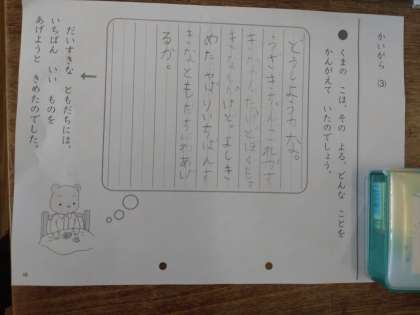 かいがら (3)
● くまの こは、その よる、どんな ことを
かんがえて いたのでしょう。
どうしようかな。
うさぎちゃんこれがす
きなんだけどぼくもす
きなんだけど。よしき
めた やぱりいちばんす
きなともだちにわあげ
るか。
だいすきな ともだちには、
いちばん いい ものを
あげようと きめたのでした。